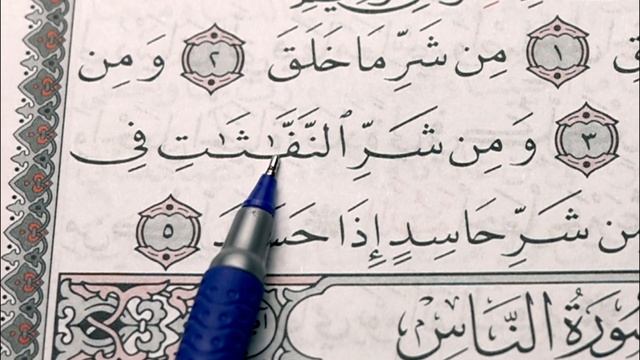 ١ مِن شَرِّ مَا خَلَقَ ٢ وَمِن
٣ وَمِن شَرِّ ٱلنَّفَّٰثَٰتِ فِى
شَرِّ حَاسِدٍ إِذَا حَسَدَ ٥
سُورَةُ النَّاسِ